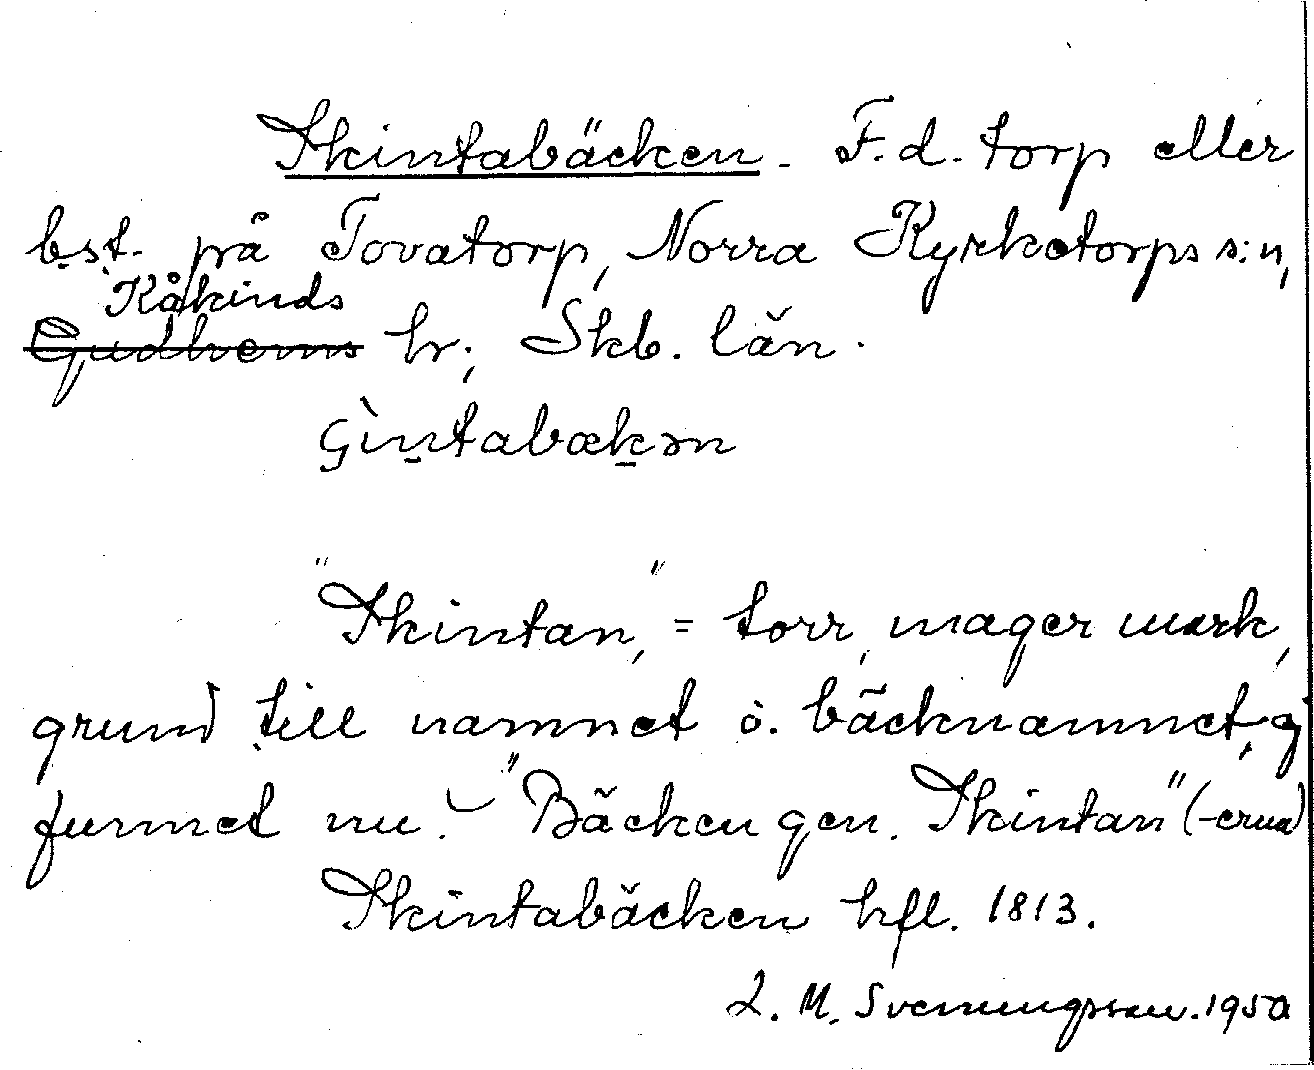 Skintabäcken. F.d. torp eller
bst. på Tovatorp, Norra Kyrketorps s:n,
Kåkinds
Gudhems hr; Skb. län.
Skintabäcken hfl. 1813.
"Skintan," = torr, mager mark,
grund till namnet o. bäcknamnet,
funnet nu. "Bäcken gen. Skintan" (-erna)
L. M. Svenungsson. 1950